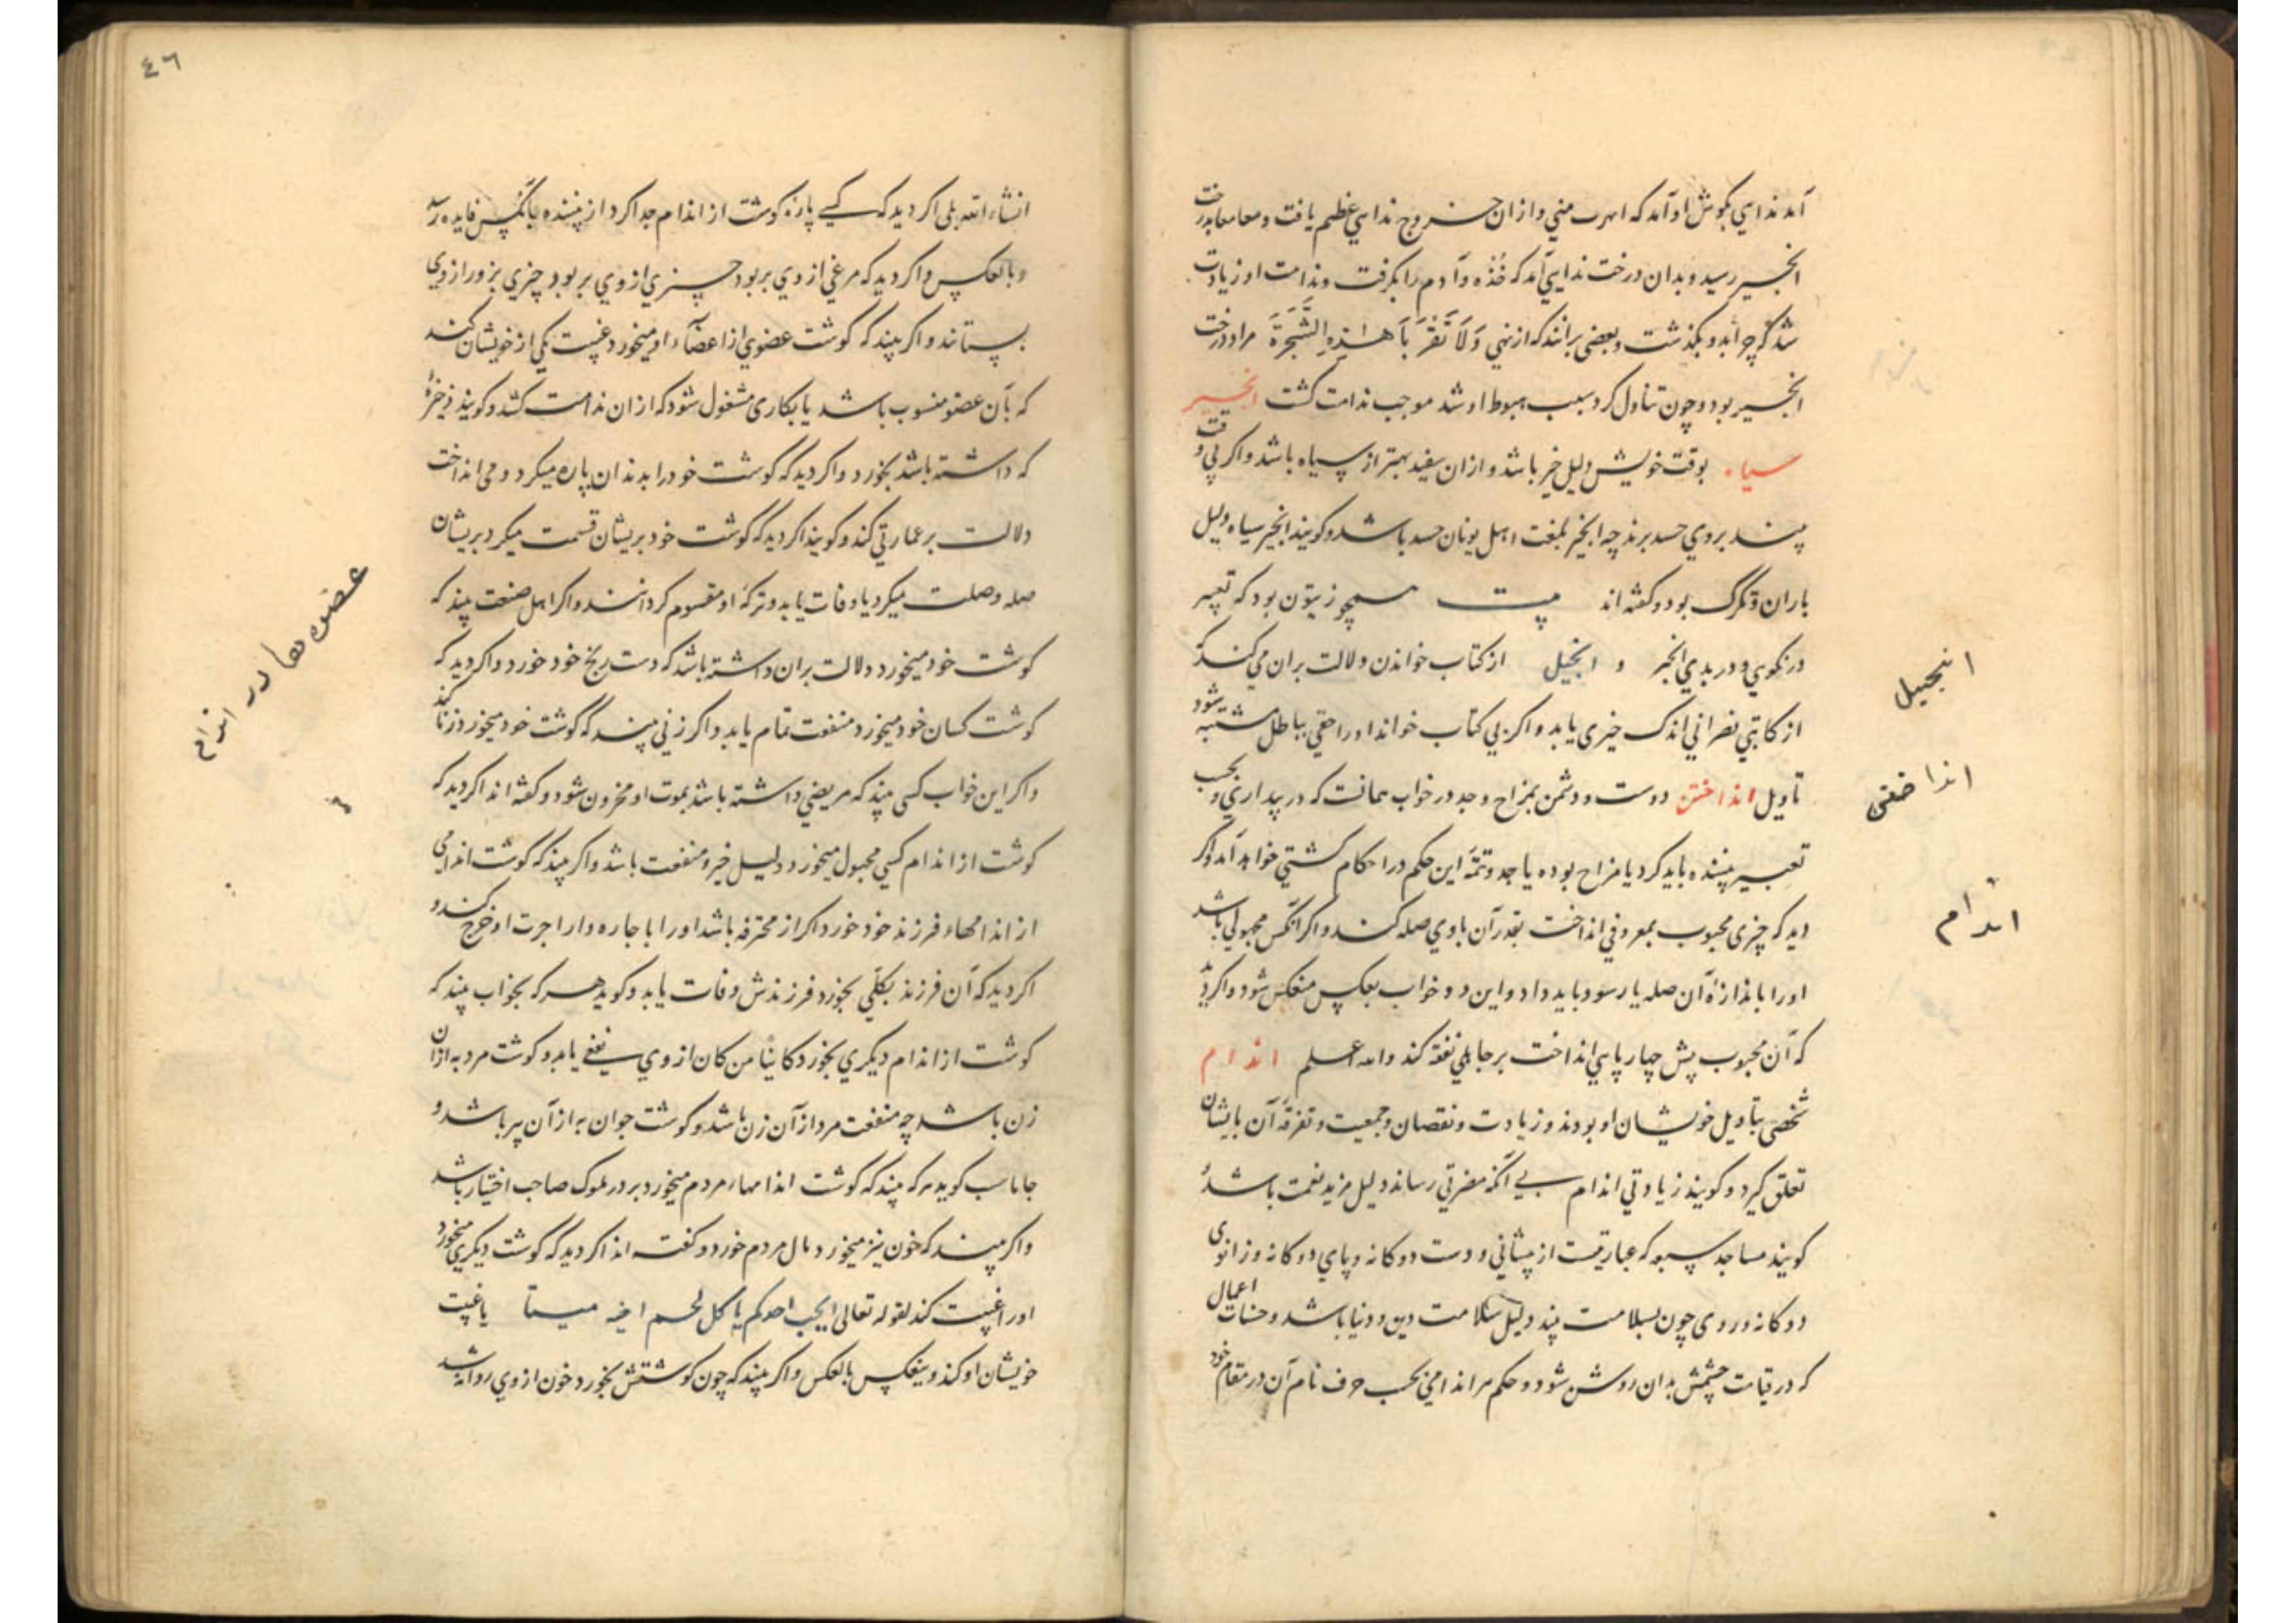 آمد ندایی بگوش او آمد که اهرب منی و ازان خروج ندایی عظیم یافت و معامعا بدرخت
انجیر رسید و بدان درخت ندایی آمد که خُذْه و آدم را بگرفت و ندامت او زیادت
شد و بگذشت و بعضی برانند که از نهی وَلَا تَقْرَبَا هٰذِهِ الشَّجَرَةَ مراد درخت
انجیر بود و چون تناول کرد سبب هبوط او شد موجب ندامت گشت انجیر
سیاه بوقت خویش دلیل خیر باشد و ازان سفید بهتر از سیاه باشد و اگر بی وقت
بیند بروی حسد برند چه انجیر بلغت اهل یونان حسد باشد و گویند انجیر سیاه دلیل
باران و تگرگ بود و گفته اند بیت همچو زیتون بود که تعبیر
در نکویی و در بدی انجیر و انجیل از کتاب خواندن دلالت بران می کند که
از کاتبی نصرانی اندک خیری یابد و اگر بی کتاب خواند او را حقی بباطل مشتبه شود
تاویل انداختن دوست و دشمن بمزاح و جد در خواب همانست که در بیداری و بحسب
تعبیر بیننده باید کرد یا مزاح بوده یا جد و تتمّه این حکم در احکام کشتی خواهد آمد و اگر
دید که چیزی محبوب بمعروفی انداخت بقدر آن باوی صله کند و اگر آنکس مجهولی باشد
او را باندازهٔ آن صله یا رسود باید داد و این دو خواب بعکس منعکس شود و اگر دید
که آن محبوب پیش چهار پایی انداخت بر جاهلی نفقه کند والله اعلم اندام
شخصی بتاویل خویشان او بودند و زیادت و نقصان و جمعیت و تفرقهٔ آن بایشان
تعلق گیرد و گویند زیادتی اندام بی آنکه مضرتی رساند دلیل مزید نعمت باشد و
گویند مساجد سبعه که عبارتست از پیشانی و دست دوگانه و پای دوگانه و زانوی
دوگانه و روی چون بسلامت بیند دلیل سلامت دین و دنیا باشد و حسنات اعمال
که در قیامت چشمش بدان روشن شود و حکم هر اندامی بحسب حرف نام آن در مقام خود
انجیل
انداختی
اندام
٤٦
انشاء الله بلی اگر دید که کسی پارهٔ گوشت از اندام جدا کرد از بیننده بآنکس فایده رسد
و بالعکس و اگر دید که مرغی از وی بربود چیزی از وی بربود چیزی بزور از وی
بستانند و اگر بیند که گوشت عضوی از اعضاء او میخورد غیبت یکی از خویشان کند
که بآن عضو منسوب باشد یا بکاری مشغول شود که ازان ندامت کشد و گویند ذخیرهٔ
که داشته باشد بخورد و اگر دید که گوشت خود را بدندان پاره میکرد و می انداخت
دلالت بر عمارتی کند و گویند اگر دید که گوشت خود بریشان قسمت میکرد بریشان
صله و صلت میکرد یا وفات یابد و ترکهٔ او مقسوم گردانند و اگر اهل صنعت بیند که
گوشت خود میخورد دلالت بران داشته باشد که دست رنج خود خورد و اگر دید که
گوشت کسان خود میخورد منفعت تمام یابد و اگر زنی بیند که گوشت خود میخورد زنا کند
و اگر این خواب کسی بیند که مریضی داشته باشد بموت او محزون شود و گفته اند اگر دید که
گوشت از اندام کسی مجهول میخورد دلیل خیر و منفعت باشد و اگر بیند که گوشت اندامی
از اندامهاء فرزند خود خورد اگر از محترفه باشد او را باجاره دارد اجرت او خرج کند و
اگر دید که آن فرزند بکلّی بخورد فرزندش وفات یابد و گوید هر که بخواب بیند که
گوشت از اندام دیگری بخورد کائنا من کان از وی نفعی یابد و گوشت مرد به ازان
زن باشد چه منفعت مرد از آن زن باشد و گوشت جوان به از آن پیر باشد و
جاماسب گوید هر که بیند که گوشت اندامهاء مردم میخورد بر در ملوک صاحب اختیار باشد
و اگر بیند که خون نیز میخورد مال مردم خورد و گفته اند اگر دید که گوشت دیگری میخورد
او را غیبت کند لقوله تعالی ایحب احدکم ان یاکل لحم اخیه میتا یا غیبت
خویشان او کند و ینعکس بالعکس و اگر بیند که چون گوشتش بخورد خون از وی روانه شد
عضوها در اندام